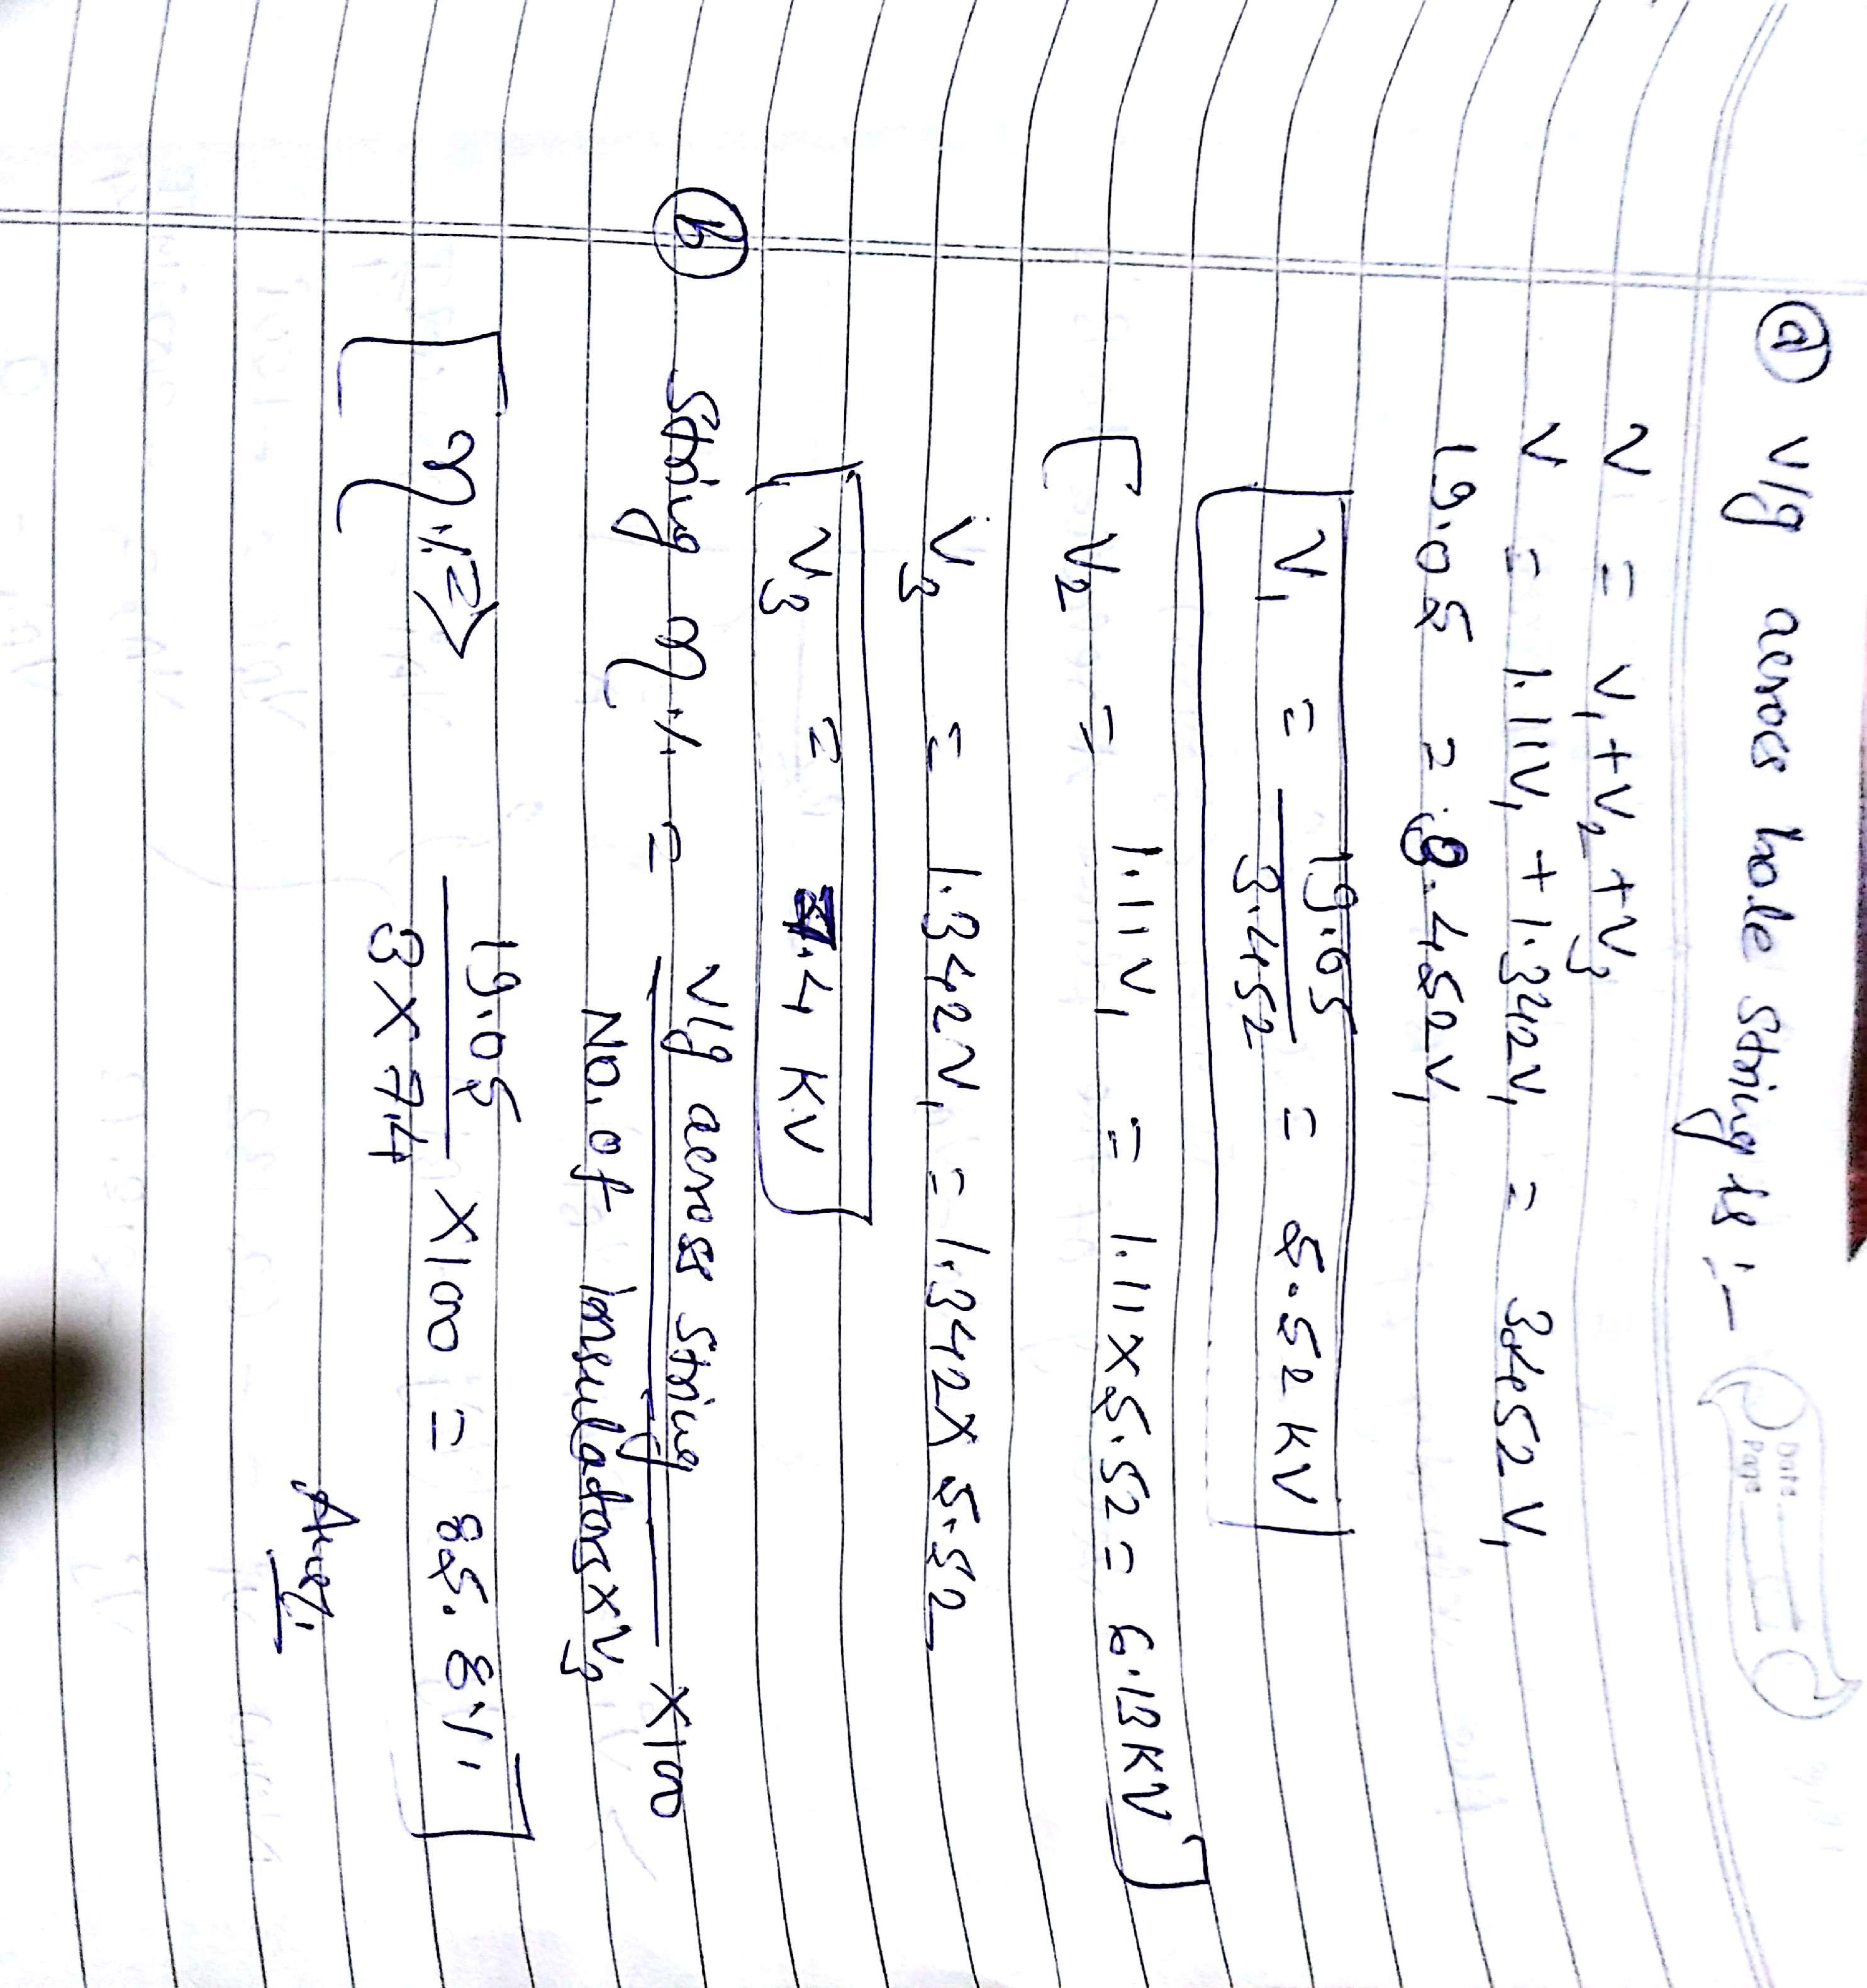 Date
Page
ⓐ V/g across hole string is :—
V = V₁+V₂+V₃
V = 1.11V₁ + 1.342V₁ = 3.452V₁
19.05 = 3.452V₁
V₁ = 19.05/3.452 = 5.52 KV
V₂ = 1.11V₁ = 1.11×5.52 = 6.13KV
V₃ = 1.342V₁ = 1.342×5.52
V₃ = 7.4 KV
ⓑ String η% = V/g across string / No. of Insulators×V₃ ×100
η% => 19.05 / 3×7.4 ×100 = 85.8%